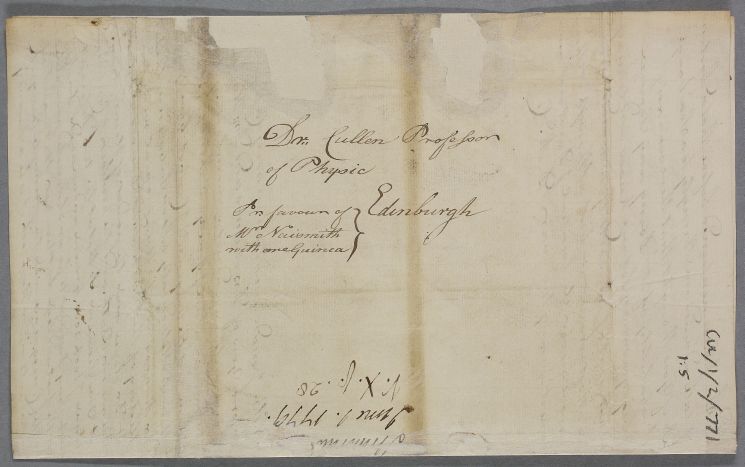 Dr. Cullen Professor
of Physic
Edinburgh
Pr favour of
Mr Naismith
with one Guinea
June 1. 1779.
V. X. p. 28
CUL/1/2/771
1.5